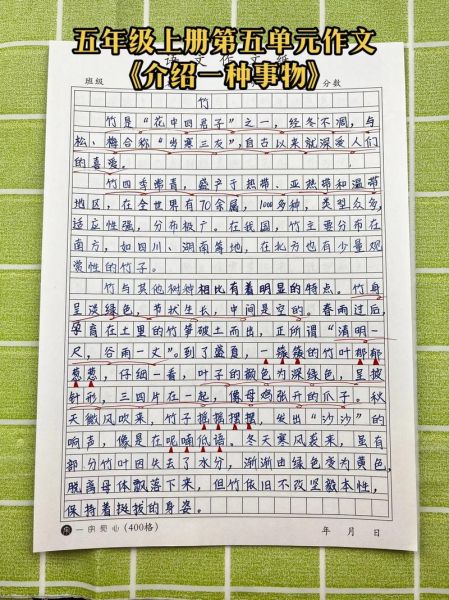 五年级上册第五单元作文
《介绍一种事物》
语文作文纸
班级
分数
竹
竹是“花中四君子”之一，经冬不凋，与
松、梅合称“岁寒三友”，自古以来就深受人们
的喜爱。
竹四季常青，盛产于热带、亚热带和温带
地区，在全世界有70余属，1000多种，类型众多，
适应性强，分布极广。在我国，竹主要分布在
南方，如四川、湖南等地，在北方也有少量观
赏性的竹子。
竹与其他树种相比有着明显的特点。竹身
呈淡绿色，节状生长，中间是空的。春雨过后，
孕育在土里的竹笋破土而出，正所谓“清明一
尺，谷雨一丈”。到了盛夏，一簇簇的竹叶郁郁
葱葱，仔细一看，叶子的颜色为深绿色，呈披
针形，三四片在一起，像母鸡张开的爪子。秋
天微风吹来，竹子摇摇摆摆，发出“沙沙”的
响声，像是在呢喃低语。冬天寒风袭来，虽有
部分竹叶因失去了水分，渐渐由绿色变为黄色，
脱离母体飘落下来，但竹依旧不改坚毅本性，
保持着挺拔的身姿。
一字见心(400格)
年 月 日